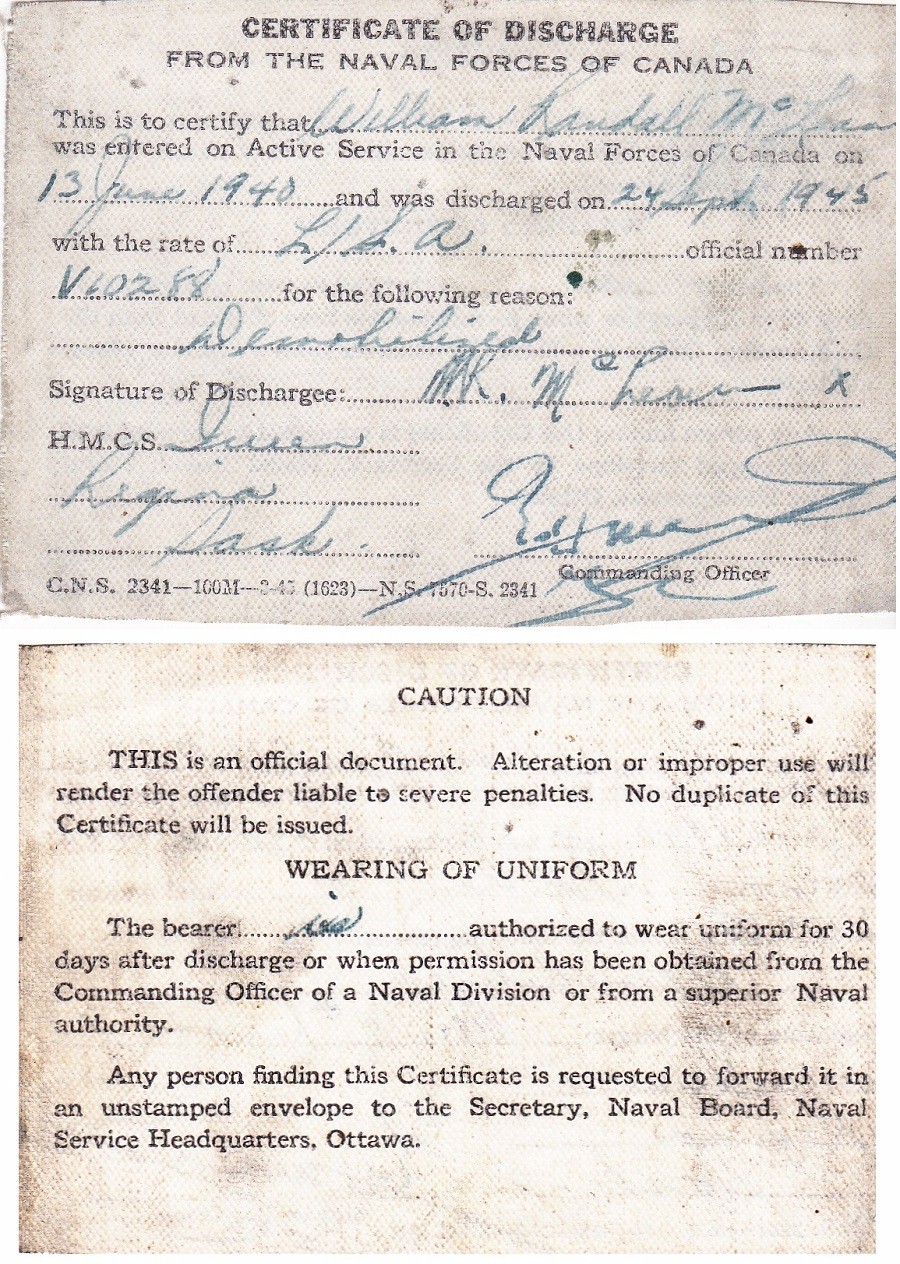 CERTIFICATE OF DISCHARGE
FROM THE NAVAL FORCES OF CANADA
This is to certify that William Randall
was entered on Active Service in the Naval Forces of Canada on
13 June 1940 and was discharged on 24 Sept. 1945
with the rate of L/S.A. official number
V10288 for the following reason:
Demobilized
Signature of Discharger: X
H.M.C.S. Queen
Regina
Sask.
Commanding Officer
C.N.S. 2341—100M—3-45 (1623)—N.S. 7570-S. 2341
CAUTION
THIS is an official document. Alteration or improper use will
render the offender liable to severe penalties. No duplicate of this
Certificate will be issued.
WEARING OF UNIFORM
The bearer is authorized to wear uniform for 30
days after discharge or when permission has been obtained from the
Commanding Officer of a Naval Division or from a superior Naval
authority.
Any person finding this Certificate is requested to forward it in
an unstamped envelope to the Secretary, Naval Board, Naval
Service Headquarters, Ottawa.